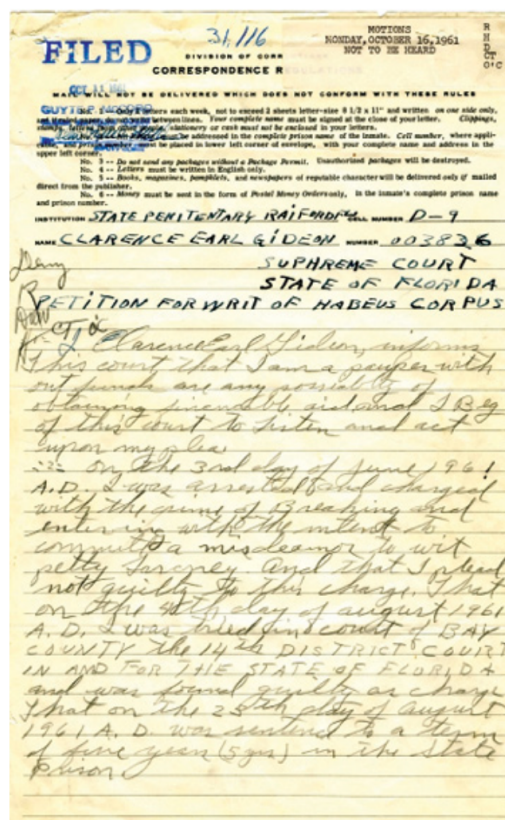 31,116
MOTIONS
MONDAY, OCTOBER 16, 1961
NOT TO BE HEARD
R
H
D
CT
O'C
FILED
DIVISION OF CORR
CORRESPONDENCE R
MAIL WILL NOT BE DELIVERED WHICH DOES NOT CONFORM WITH THESE RULES
No. 1 -- Only 2 letters each week, not to exceed 2 sheets letter-size 8 1/2 x 11" and written on one side only,
and if ruled paper, do not write between lines. Your complete name must be signed at the close of your letter. Clippings,
stamps, letters from other people, stationery or cash must not be enclosed in your letters.
must be addressed in the complete prison name of the inmate. Cell number, where appli-
cable, and prison number must be placed in lower left corner of envelope, with your complete name and address in the
upper left corner.
No. 3 -- Do not send any packages without a Package Permit. Unauthorized packages will be destroyed.
No. 4 -- Letters must be written in English only.
No. 5 -- Books, magazines, pamphlets, and newspapers of reputable character will be delivered only if mailed
direct from the publisher.
No. 6 -- Money must be sent in the form of Postal Money Orders only, in the inmate's complete prison name
and prison number.
INSTITUTION STATE PENITENTARY RAIFORD FLA CELL NUMBER D-9
NAME CLARENCE EARL GIDEON NUMBER 003826
Deny
SUPHREME COURT
STATE OF FLORIDA
PETITION FOR WRIT OF HABEUS CORPUS
I Clarence Earl Gideon, informs
This court that I am a pauper with
out funds are any possiably of
obtaining financable aid and I Beg
of this court to listen and act
upon my plea
on the 3rd day of June 1961
A.D. I was arrested and charged
with the crime of Breaking and
entering with the intent to
commit a misdeamor to wit
petty larcney And that I plead
not guilty to this charge. That
on the 4th day of august 1961
A.D. I was tried in court of BAY
COUNTY the 14th DISTRICT COURT
IN AND FOR THE STATE OF FLORIDA
and was found guilty as charge
That on the 25th day of August
1961 A.D. was sentend to a term
of five year (5 yrs) in the State
Prison